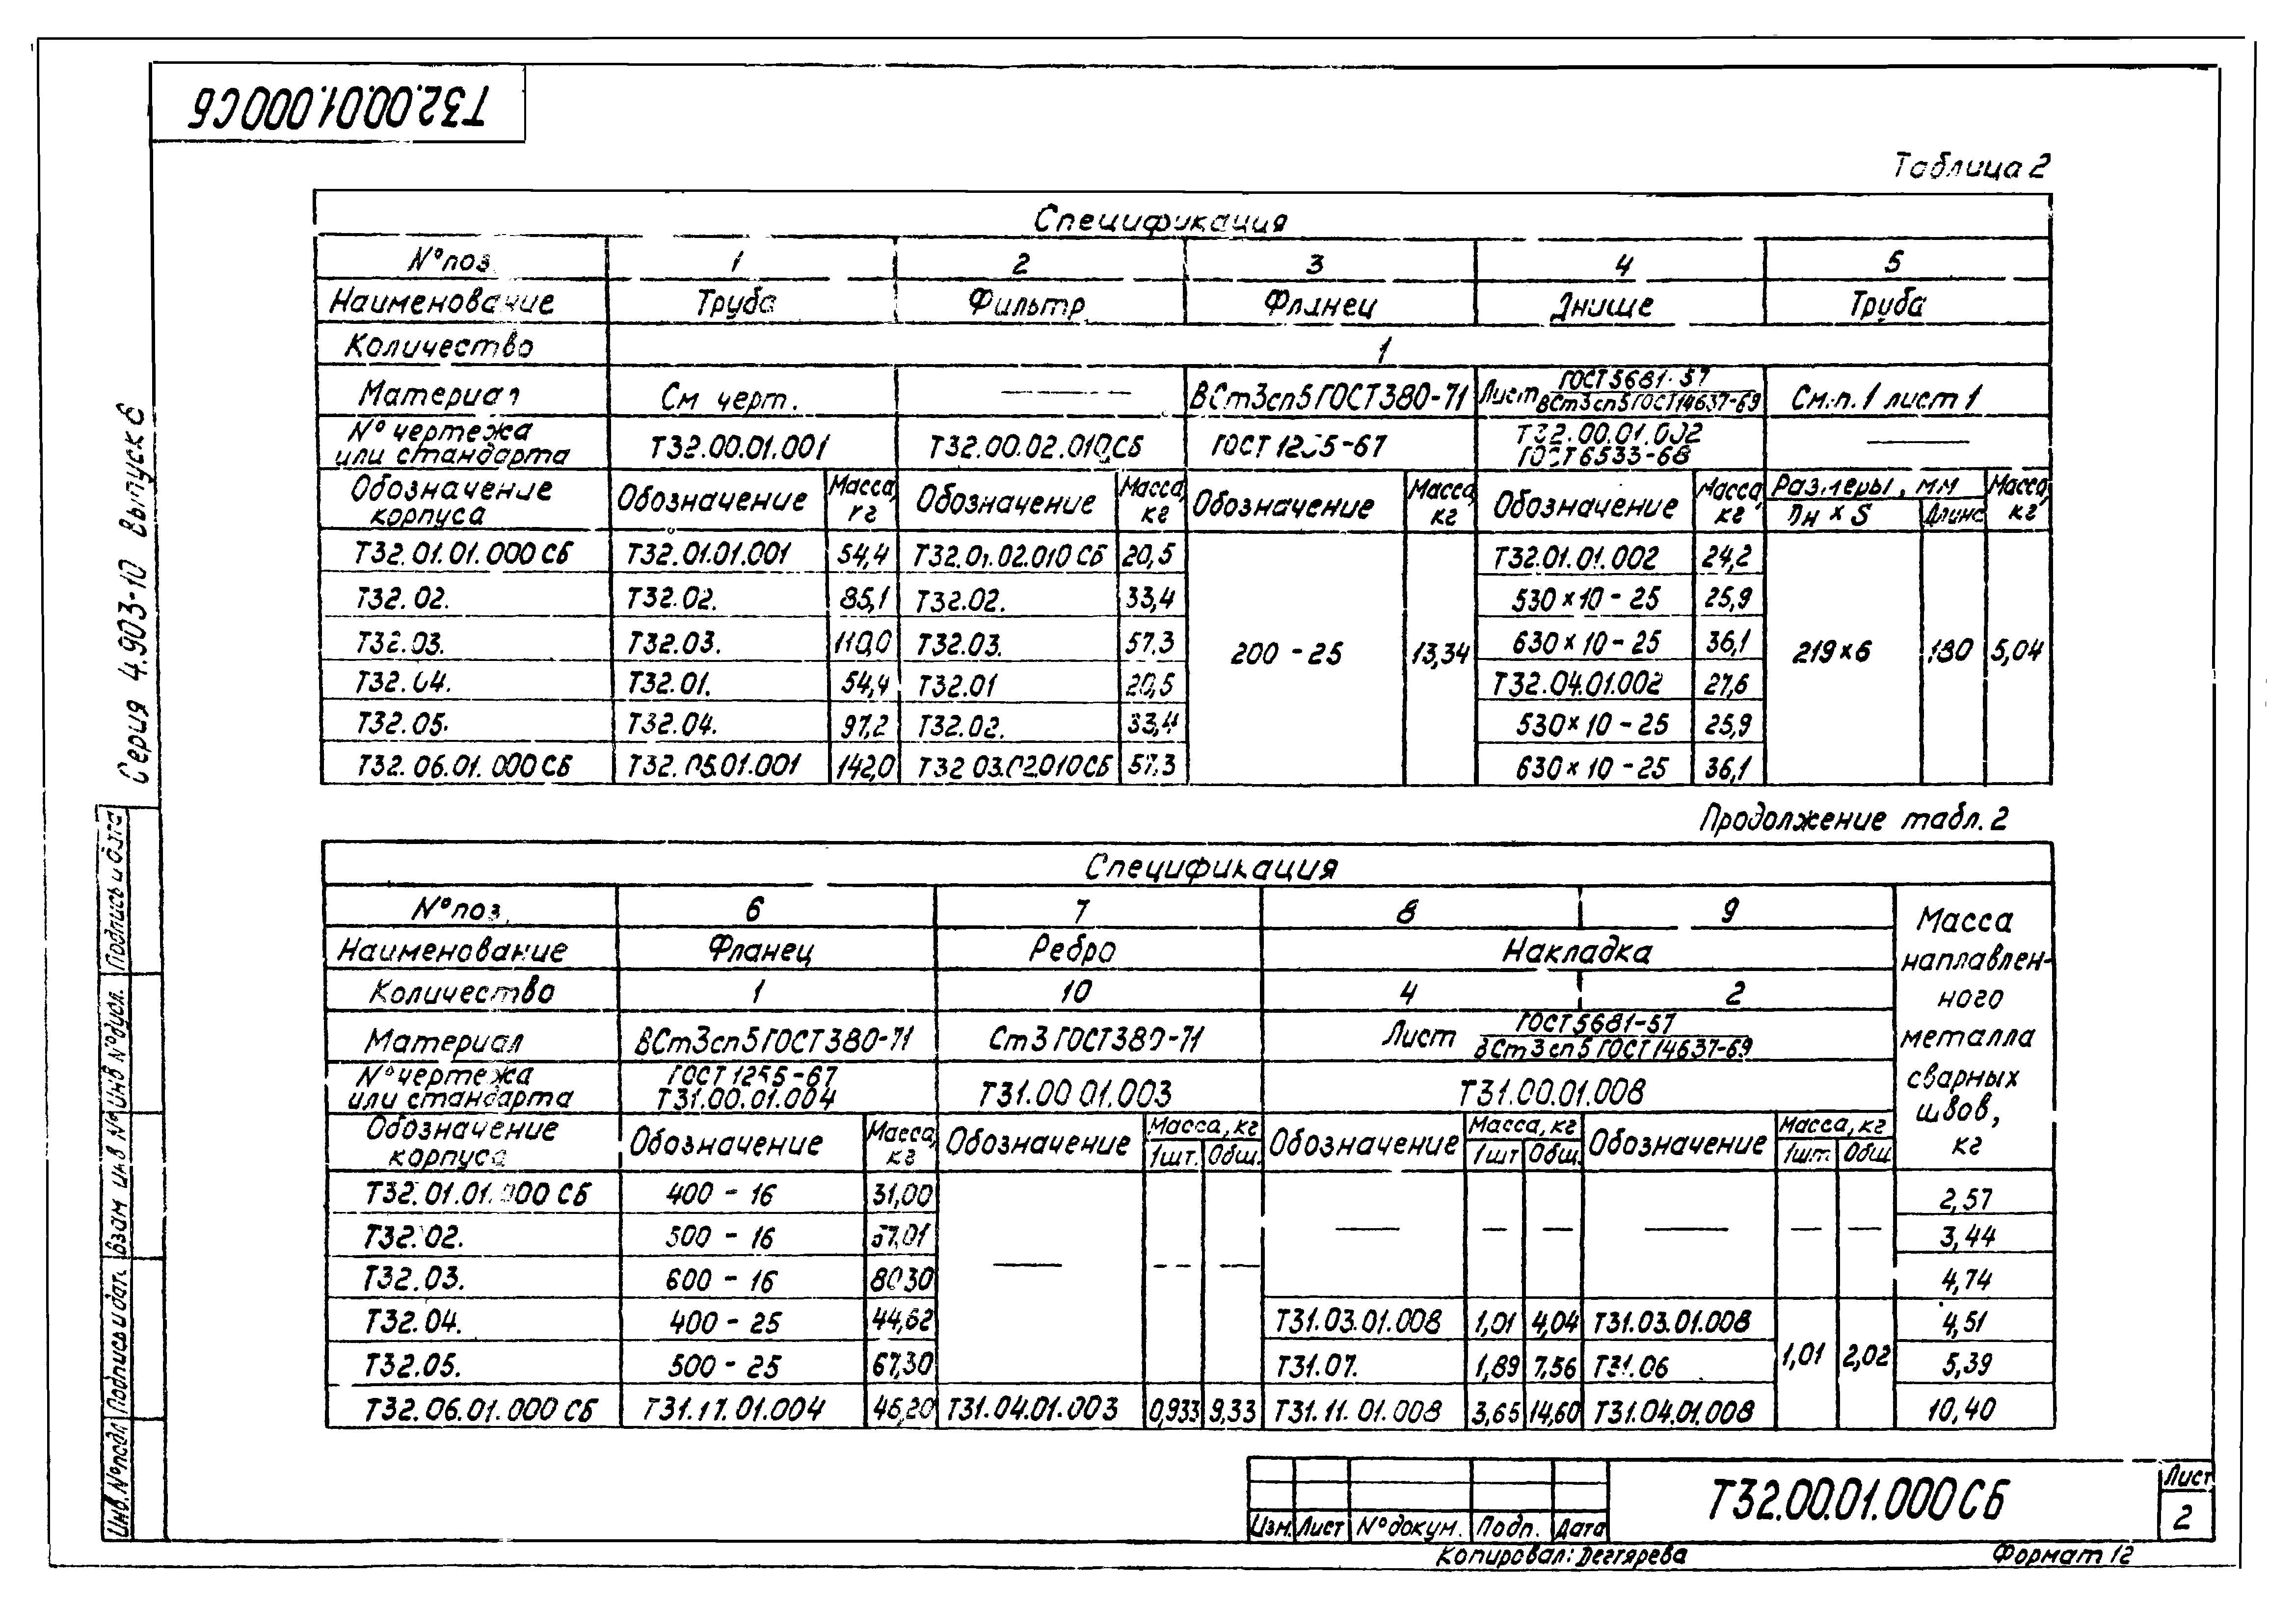 Т32.00.01.000СБ
Таблица 2
Спецификация
N° поз. 1 2 3 4 5
Наименование Труба Фильтр Фланец Днище Труба
Количество 1
Материал См черт. ——— ВСт3сп5 ГОСТ380-71 Лист ГОСТ5681-57 / ВСт3сп5 ГОСТ14637-69 См.п.1 лист 1
N° чертежа или стандарта Т32.00.01.001 Т32.00.02.010СБ ГОСТ 1255-67 Т32.00.01.002 ГОСТ6533-68 ———
Обозначение корпуса Обозначение Масса, кг Обозначение Масса, кг Обозначение Масса, кг Обозначение Масса, кг Размеры, мм Dн × S Длина Масса, кг
Т32.01.01.000 СБ Т32.01.01.001 54,4 Т32.01.02.010 СБ 20,5 Т32.01.01.002 24,2
Т32.02. Т32.02. 85,1 Т32.02. 33,4 530×10-25 25,9
Т32.03. Т32.03. 110,0 Т32.03. 57,3 200-25 13,34 630×10-25 36,1 219×6 180 5,04
Т32.04. Т32.01. 54,4 Т32.01 20,5 Т32.04.01.002 27,6
Т32.05. Т32.04. 97,2 Т32.02. 33,4 530×10-25 25,9
Т32.06.01.000 СБ Т32.05.01.001 142,0 Т32 03.02.010СБ 57,3 630×10-25 36,1
Продолжение табл. 2
Спецификация
N° поз. 6 7 8 9 Масса наплавлен-ного металла сварных швов, кг
Наименование Фланец Ребро Накладка
Количество 1 10 4 2
Материал ВСт3сп5 ГОСТ380-71 Ст3 ГОСТ380-71 Лист ГОСТ5681-57 / ВСт3сп5 ГОСТ14637-69
N° чертежа или стандарта ГОСТ 1255-67 Т31.00.01.004 Т31.00 01.003 Т31.00.01.008
Обозначение корпуса Обозначение Масса, кг Обозначение Масса, кг 1шт. Общ. Обозначение Масса, кг 1шт Общ. Обозначение Масса, кг 1шт. Общ
Т32.01.01.000 СБ 400-16 31,00 2,57
Т32.02. 500-16 57,01 — — — — — — 3,44
Т32.03. 600-16 80,30 — — — 4,74
Т32.04. 400-25 44,62 Т31.03.01.008 1,01 4,04 Т31.03.01.008 4,51
Т32.05. 500-25 67,30 Т31.07. 1,89 7,56 Т31.06 1,01 2,02 5,39
Т32.06.01.000 СБ Т31.11.01.004 46,20 Т31.04.01.003 0,933 9,33 Т31.11.01.008 3,65 14,60 Т31.04.01.008 10,40
Серия 4.903-10 Выпуск 6
Подпись и дата
Инв N° дубл.
Взам инв N°
Подпись и дата
Инв. N° подл
Изм. Лист N° докум. Подп. Дата
Т32.00.01.000СБ
Лист
2
Копировал: Дегтярева
Формат 12